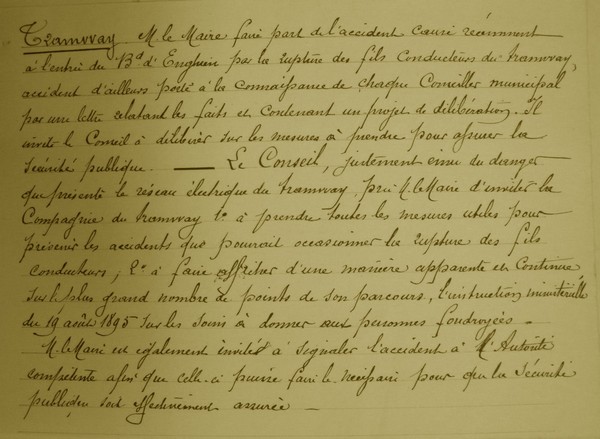 Tramway M. le Maire fait part de l'accident causé récemment
à l'entrée du B^d d'Enghien par la rupture des fils conducteurs du tramway,
accident d'ailleurs porté à la connaissance de chaque Conseiller municipal
par une lettre relatant les faits et contenant un projet de délibération. Il
invite le Conseil à délibérer sur les mesures à prendre pour assurer la
sécurité publique. — Le Conseil, justement ému du danger
que présente le réseau électrique du tramway, prie M. le Maire d'inviter la
Compagnie du tramway 1° à prendre toutes les mesures utiles pour
prévenir les accidents que pourrait occasionner la rupture des fils
conducteurs; 2° à faire afficher d'une manière apparente et continue
sur le plus grand nombre de points de son parcours, l'instruction ministérielle
du 19 août 1895 sur les soins à donner aux personnes foudroyées —
M. le Maire est également invité à signaler l'accident à l'Autorité
compétente afin que celle-ci puisse faire le nécessaire pour que la sécurité
publique soit effectivement assurée —